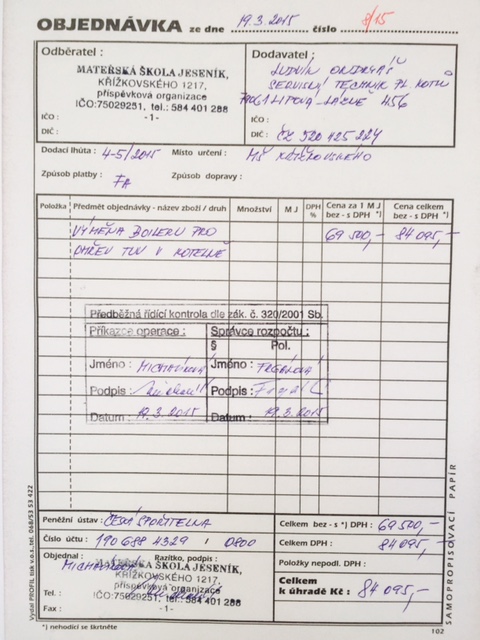 OBJEDNÁVKA ze dne 19.3.2015 číslo 8/15
Odběratel :
MATEŘSKÁ ŠKOLA JESENÍK,
KŘÍŽKOVSKÉHO 1217,
příspěvková organizace
IČO:75029251, tel.: 584 401 288
-1-
IČO :
DIČ :
Dodavatel :
LUDVÍK ONDRYÁŠ
SERVISNÍ TECHNIK PL. KOTLŮ
LIPOVÁ-LÁZNĚ 456
IČO :
DIČ : CZ 520425224
Dodací lhůta : 4-5/2015 Místo určení : MŠ KŘÍŽKOVSKÉHO
Způsob platby : FA Způsob dopravy :
Položka Předmět objednávky - název zboží / druh Množství M J DPH % Cena za 1 M J bez - s DPH *) Cena celkem bez - s DPH *)
VÝMĚNA BOILERU PRO 69 500,- 84 095,-
OHŘEV TUV V KOTELNĚ
Předběžná řídící kontrola dle zák. č. 320/2001 Sb.
Příkazce operace : Správce rozpočtu :
§ Pol.
Jméno : Jméno :
Podpis : Podpis :
Datum : 19.3.2015 Datum : 19.3.2015
Peněžní ústav : ČESKÁ SPOŘITELNA
Číslo účtu : 190 688 4329 / 0800
Objednal : Razítko, podpis :
MATEŘSKÁ ŠKOLA JESENÍK,
KŘÍŽKOVSKÉHO 1217,
příspěvková organizace
IČO:75029251, tel.: 584 401 288
-1-
Tel. :
Fax :
Celkem bez - s *) DPH : 69 500,-
Celkem DPH : 84 095,-
Položky nepodl. DPH :
Celkem
k úhradě Kč : 84 095,-
*) nehodící se škrtněte
102
Vydal PROFIL tisk v.o.s., tel. 068/53 53 422
SAMOPROPISOVACÍ PAPÍR